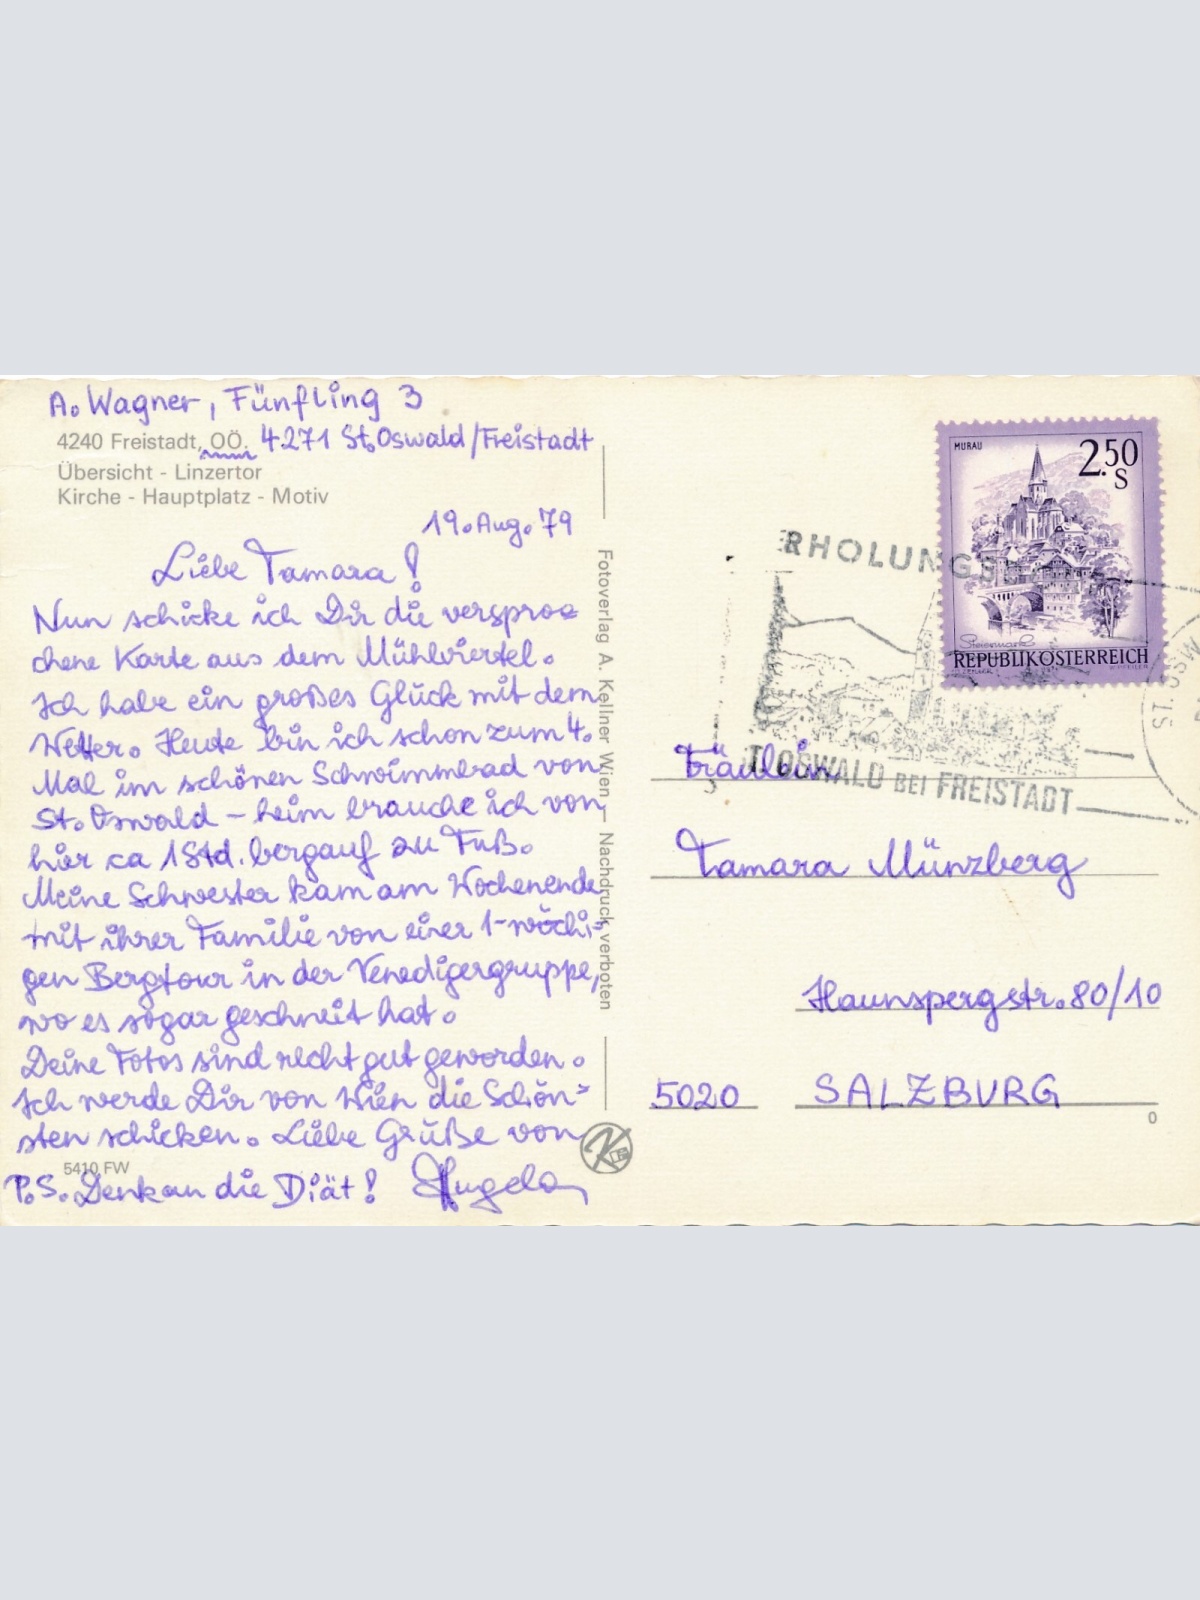 A. Wagner, Fünfling 3
4240 Freistadt, OÖ. 4271 St. Oswald/Freistadt
Übersicht - Linzertor
Kirche - Hauptplatz - Motiv
19. Aug. 79
Liebe Tamara!
Nun schicke ich Dir die verspro=
chene Karte aus dem Mühlviertel.
Ich habe ein großes Glück mit dem
Wetter. Heute bin ich schon zum 4.
Mal im schönen Schwimmbad von
St. Oswald – heim brauche ich von
hier ca 1 Std. bergauf zu Fuß.
Meine Schwester kam am Wochenende
mit ihrer Familie von einer 1-wöchi=
gen Bergtour in der Venedigergruppe,
wo es sogar geschneit hat.
Deine Fotos sind recht gut geworden.
Ich werde Dir von Wien die Schön=
sten schicken. Liebe Grüße von
5410 FW
P.S. Denk an die Diät! Angela
Fotoverlag A. Kellner Wien – Nachdruck verboten
MURAU
2.50
S
Steiermark
REPUBLIK ÖSTERREICH
ERHOLUNGS
T. OSWALD BEI FREISTADT
ST. OSW
Fräulein
Tamara Münzberg
Haunspergstr. 80/10
5020 SALZBURG
0